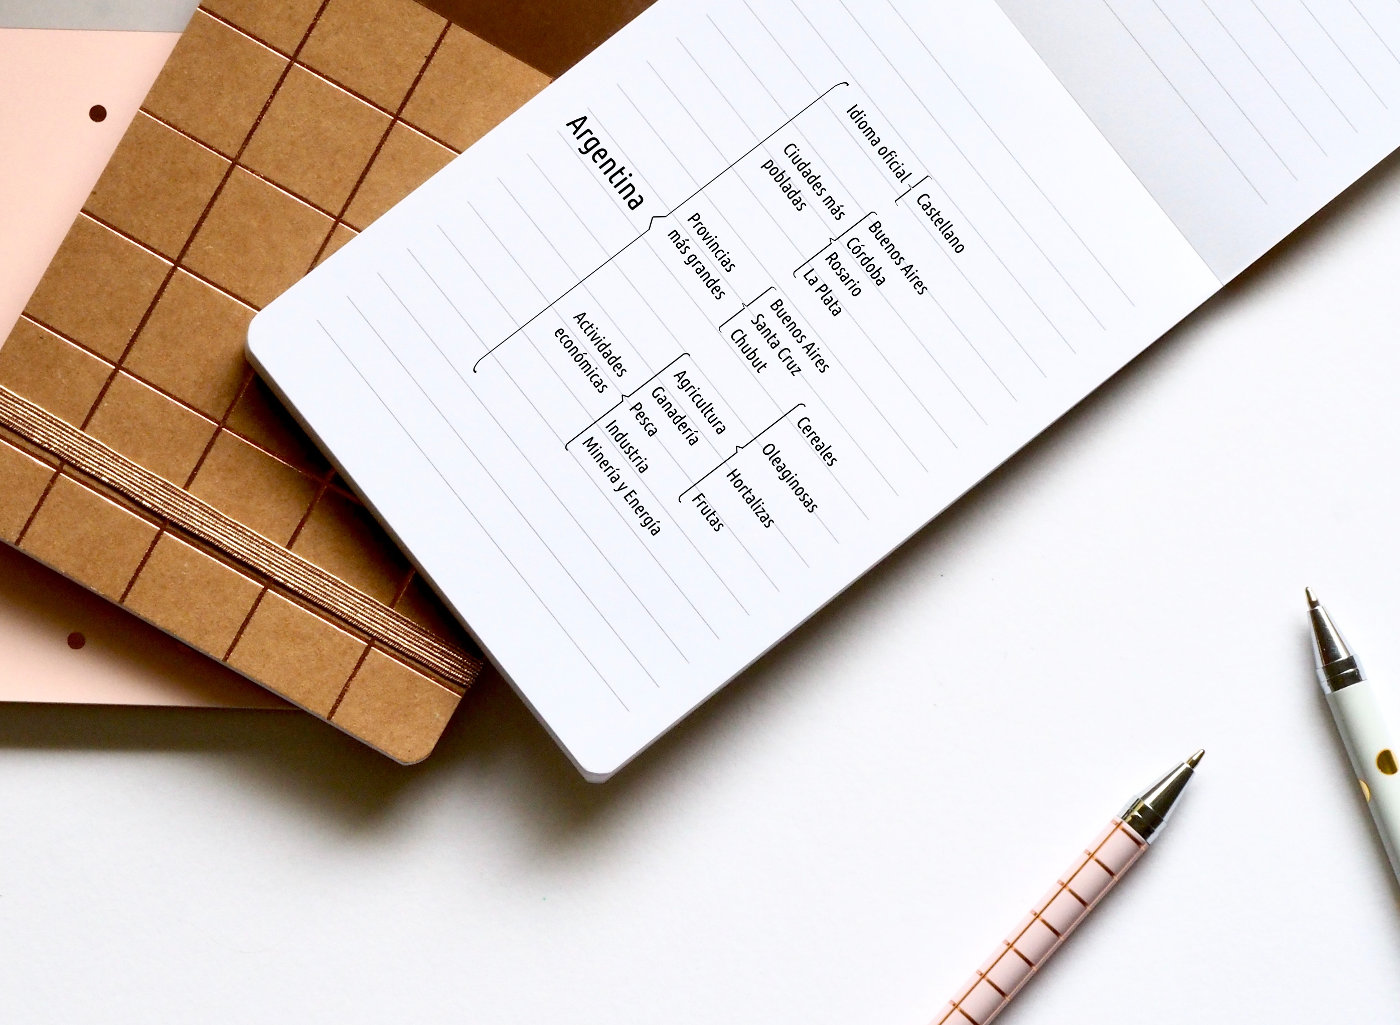 Argentina
Idioma oficial
Castellano
Ciudades más
pobladas
Buenos Aires
Córdoba
Rosario
La Plata
Provincias
más grandes
Buenos Aires
Santa Cruz
Chubut
Actividades
económicas
Agricultura
Ganadería
Pesca
Industria
Minería y Energía
Cereales
Oleaginosas
Hortalizas
Frutas